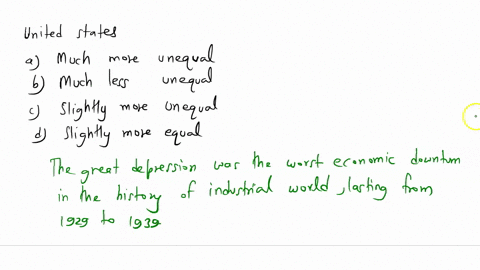 United states
a) Much more unequal
b) Much less unequal
c) Slightly more unequal
d) Slightly more equal
The great depression was the worst economic downturn
in the history of industrial world, lasting from
1929 to 1939